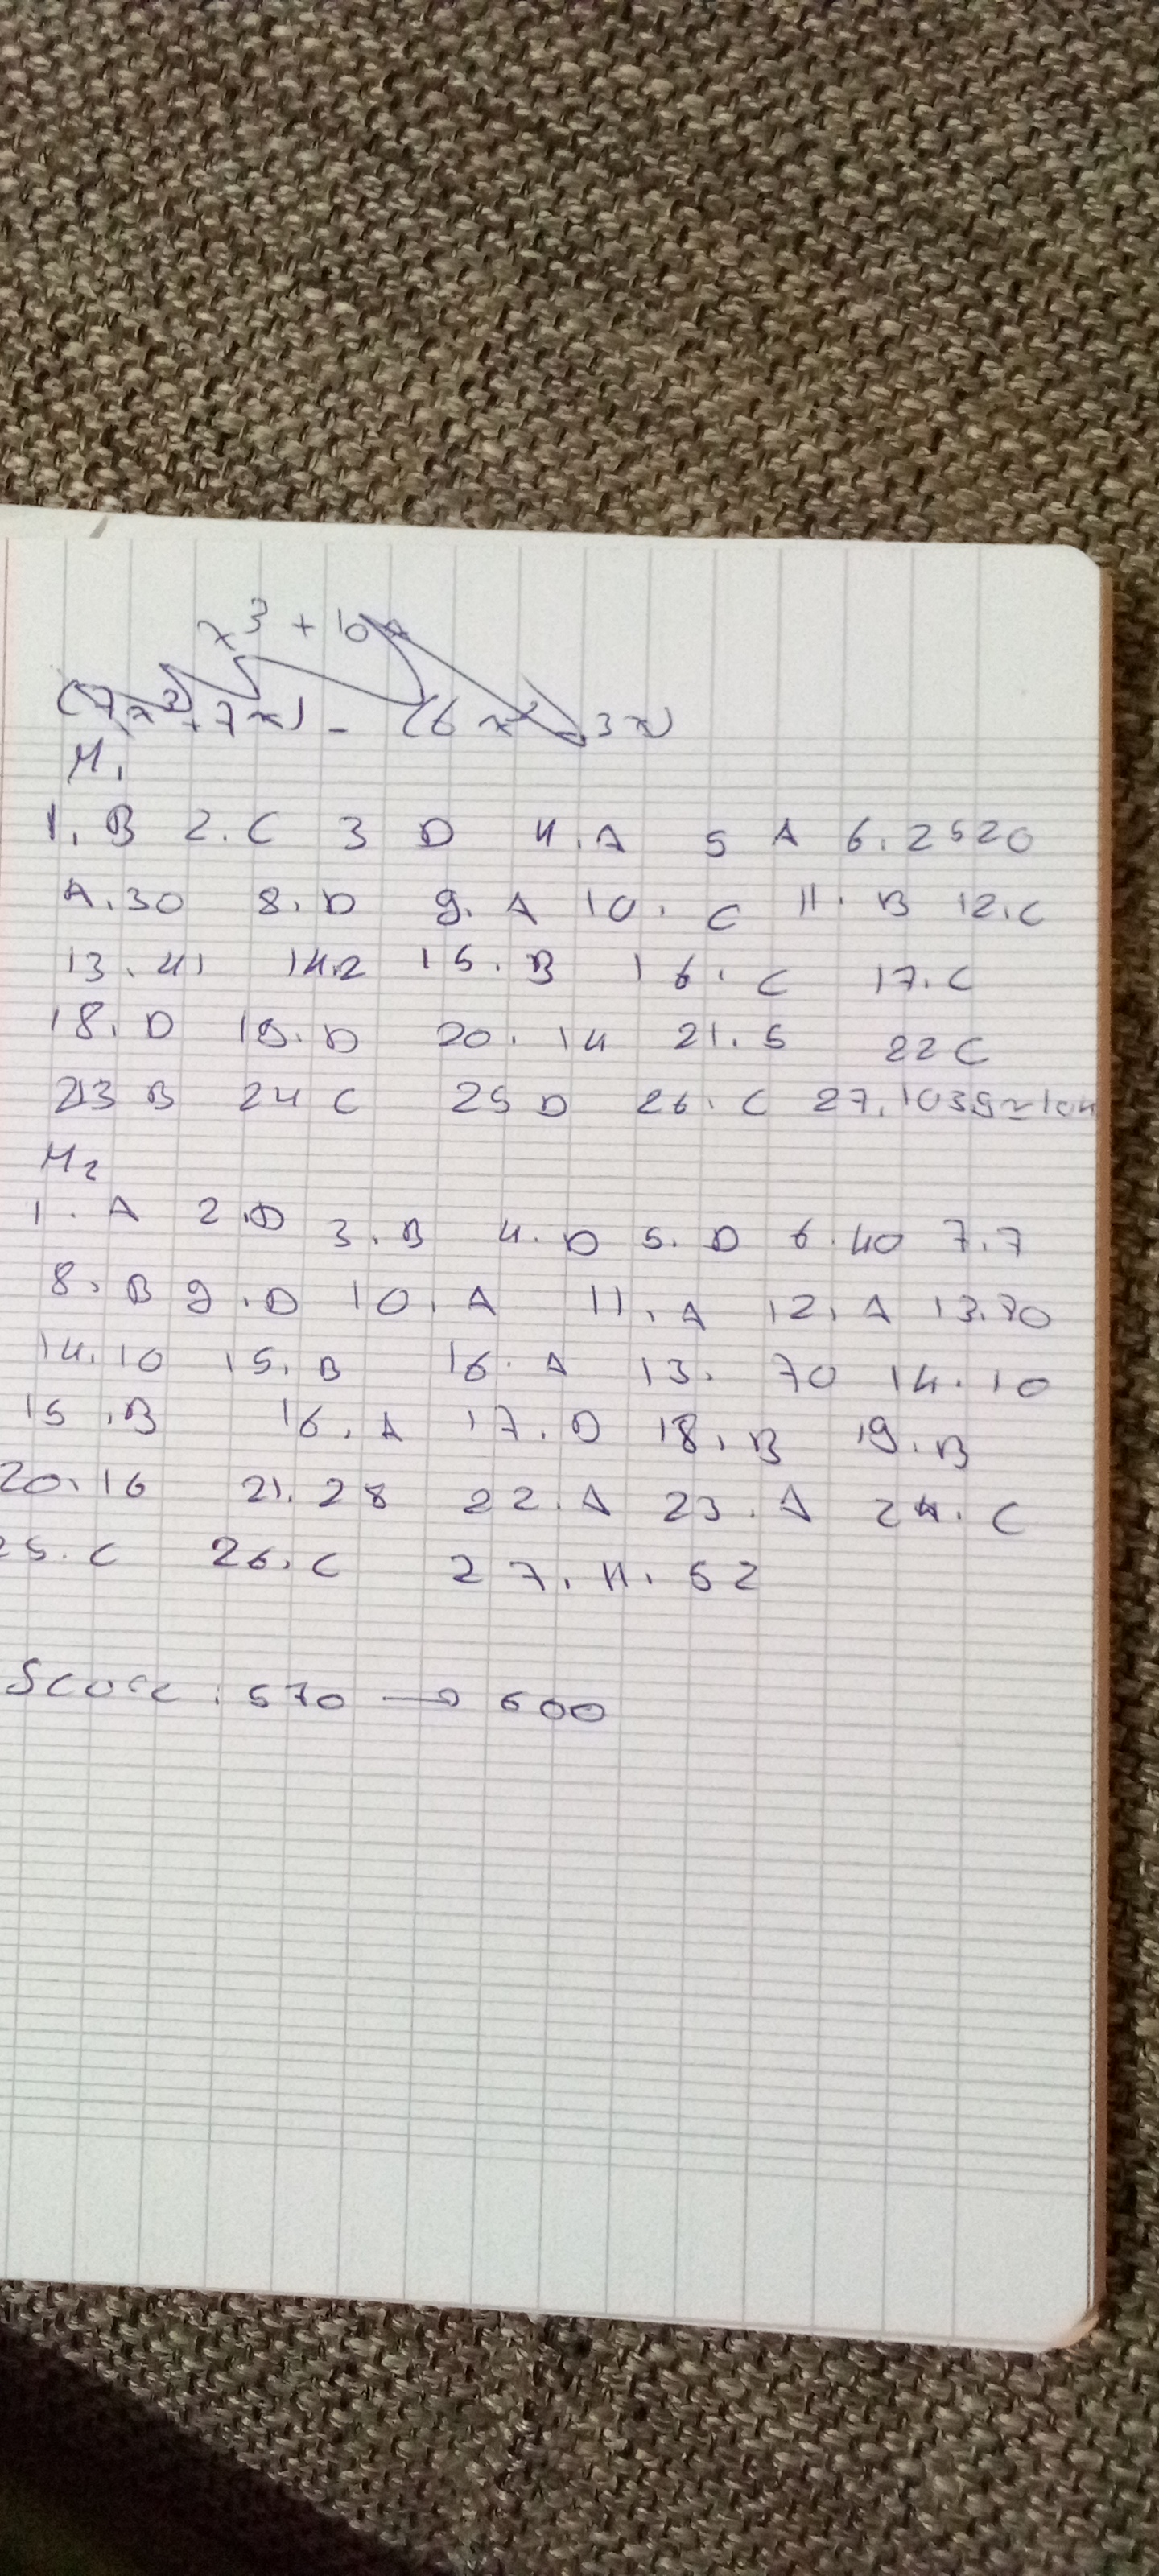 x³ + 10x
(7x³ + 7x) - (6x³ 3x)
M1
1. B 2. C 3 D 4. A 5 A 6. 2520
A. 30 8. D 9. A 10. C 11. B 12. C
13. 41 14.2 15. B 16. C 17. C
18. D 19. D 20. 14 21. 5 22 C
23 B 24 C 25 D 26. C 27. 1039≈104
M2
1. A 2. D 3. B 4. D 5. D 6. 40 7. 7
8. B 9. D 10. A 11. A 12. A 13. 70
14. 10 15. B 16. A 13. 70 14. 10
15. B 16. A 17. D 18. B 19. B
20. 16 21. 28 22. A 23. A 24. C
25. C 26. C 27. 11. 52
Score : 570 → 600